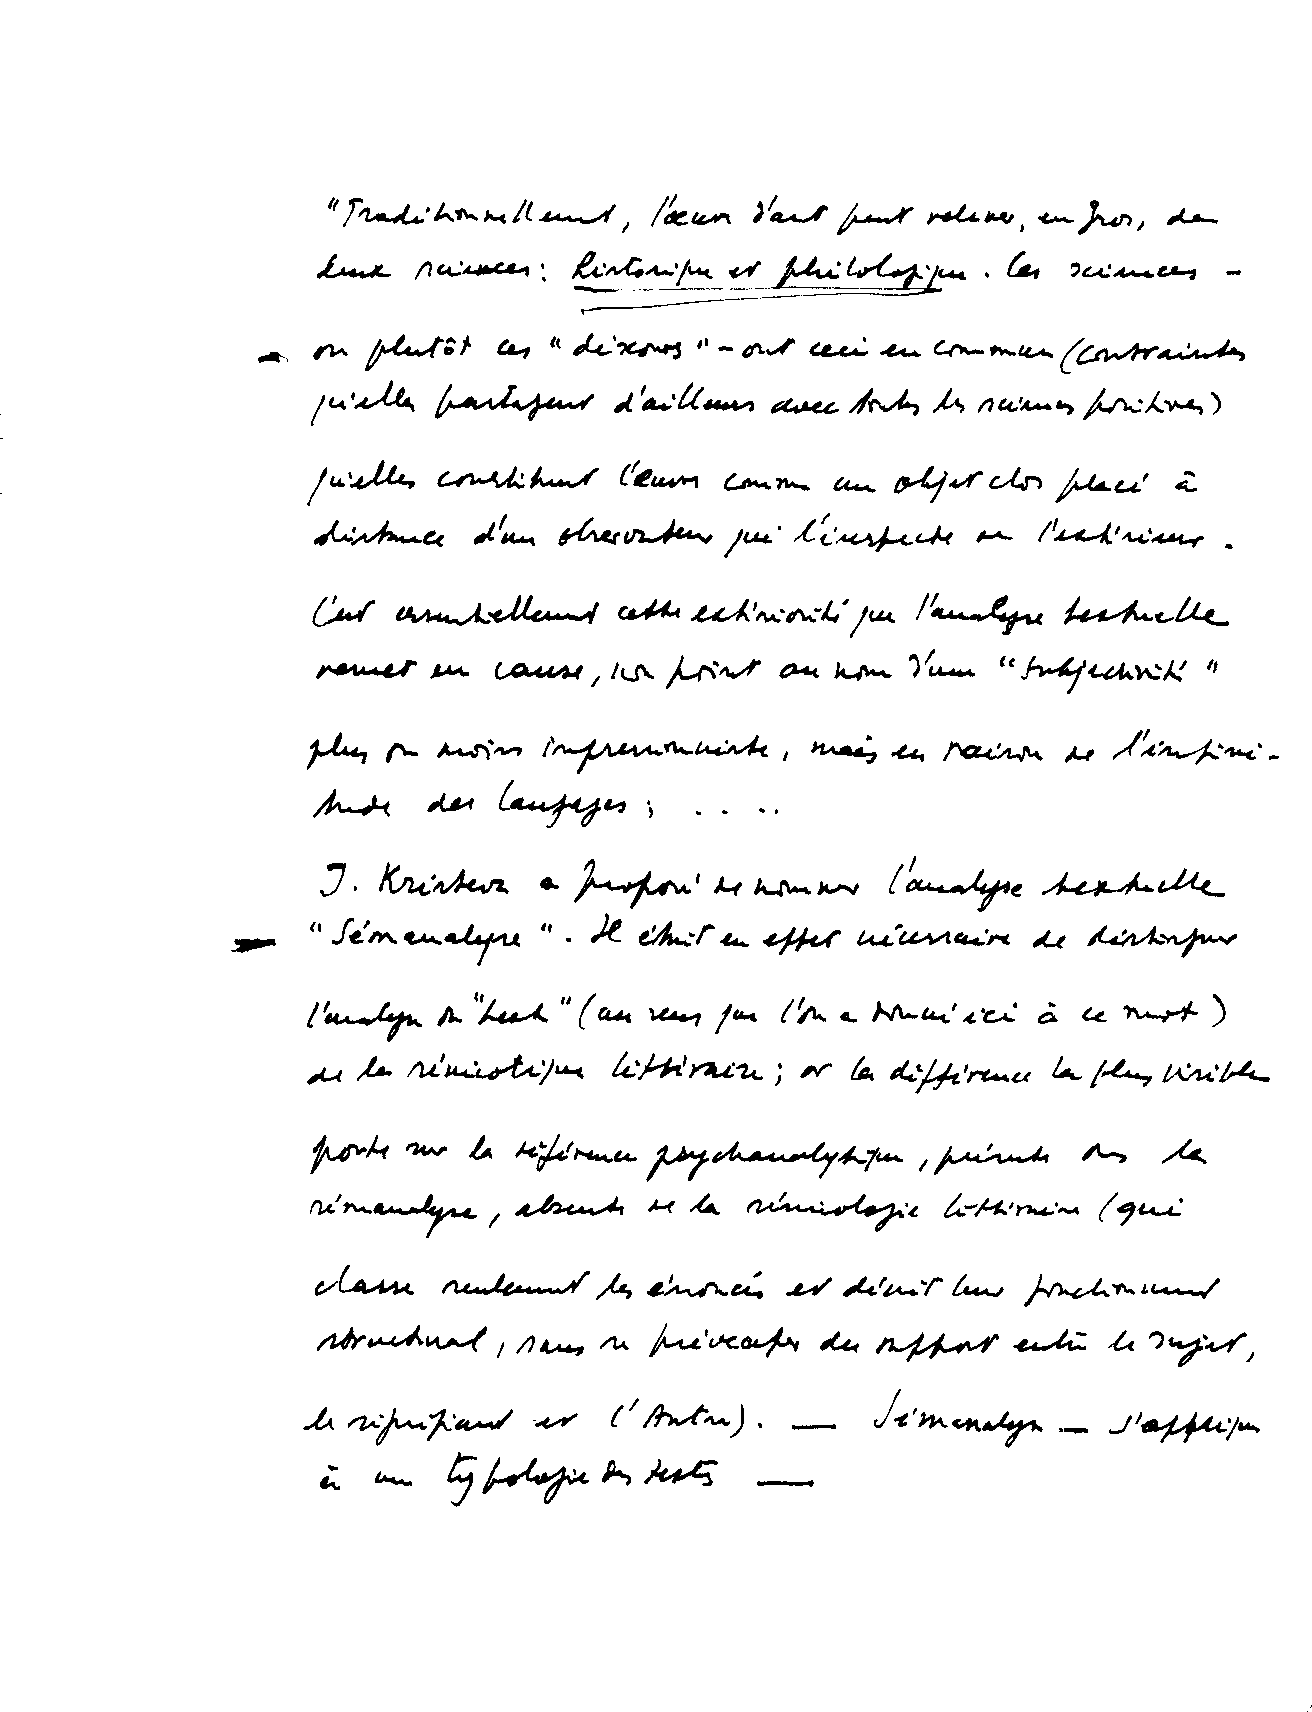 "Traditionnellement, l'œuvre d'art peut relever, en gros, de
deux sciences : historique et philologique. Ces sciences -
ou plutôt ces "discours" - ont ceci en commun (contraintes
qu'elles partagent d'ailleurs avec toutes les sciences positives)
qu'elles constituent l'œuvre comme un objet clos placé à
distance d'un observateur qui l'inspecte de l'extérieur.
C'est essentiellement cette extériorité que l'analyse textuelle
remet en cause, non point au nom d'une "subjectivité"
plus ou moins impressionniste, mais en raison de l'infini-
tude des langages ; ....
J. Kristeva a proposé de nommer l'analyse textuelle
"Sémanalyse". Il était en effet nécessaire de distinguer
l'analyse du "texte" (au sens que l'on a donné ici à ce mot)
de la sémiotique littéraire ; or la différence la plus visible
porte sur la référence psychanalytique, présente dans la
sémanalyse, absente de la sémiologie littéraire (qui
classe seulement les énoncés et décrit leur fonctionnement
structural, sans se préoccuper du rapport entre le sujet,
le signifiant et l'Autre). — Sémanalyse — s'applique
à une typologie des textes —